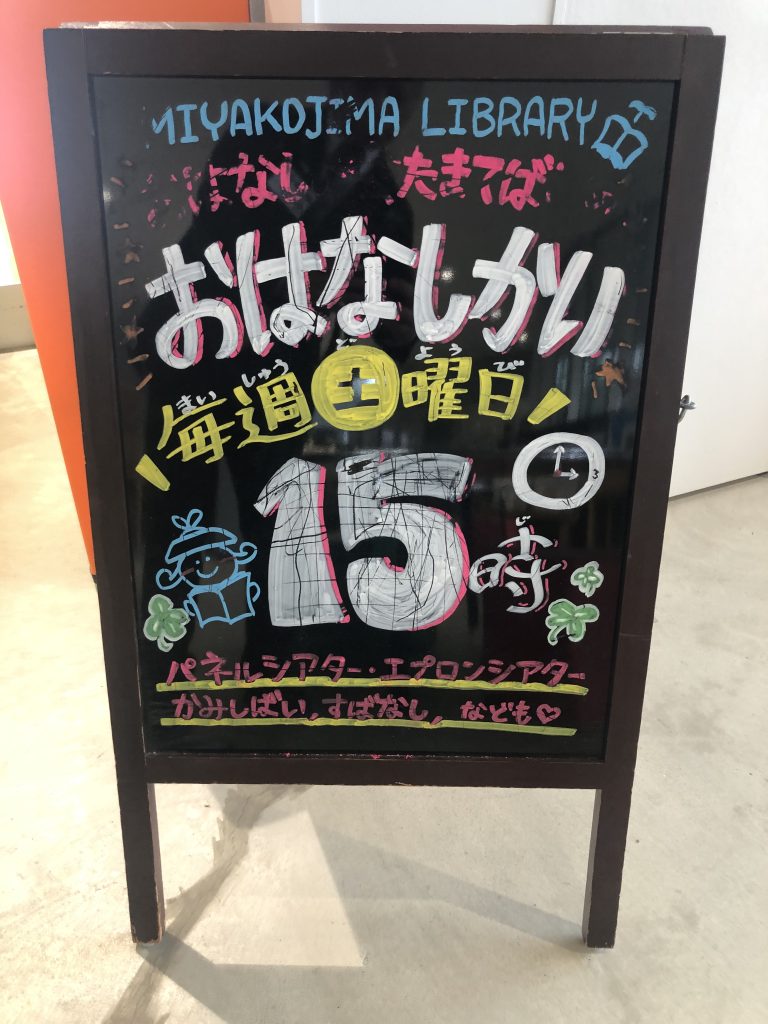 MIYAKOJIMA LIBRARY
はなし たきてば
おはなしかい
まい しゅう ど よう び
毎週土曜日!
3
VI
じ
15時
パネルシアター・エプロンシアター
かみしばい, すばなし, なども♡